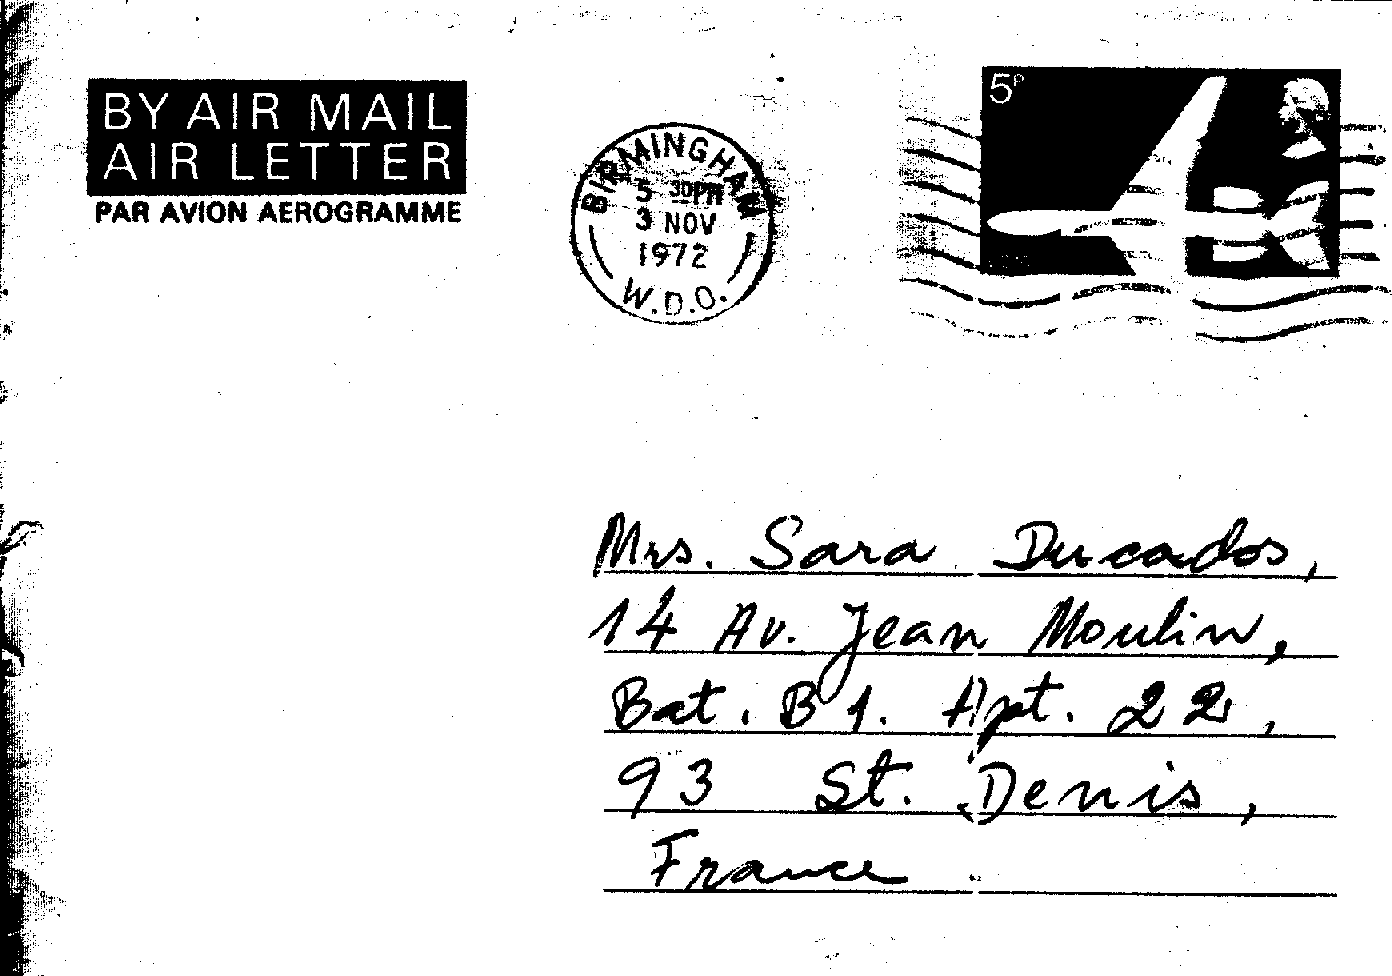 BY AIR MAIL
AIR LETTER
PAR AVION AEROGRAMME
BIRMINGHAM
5 30PM
3 NOV
1972
W.D.O.
5P
Mrs. Sara Ducados,
14 Av. Jean Moulin,
Bat. B 1. Apt. 22,
93 St. Denis,
France